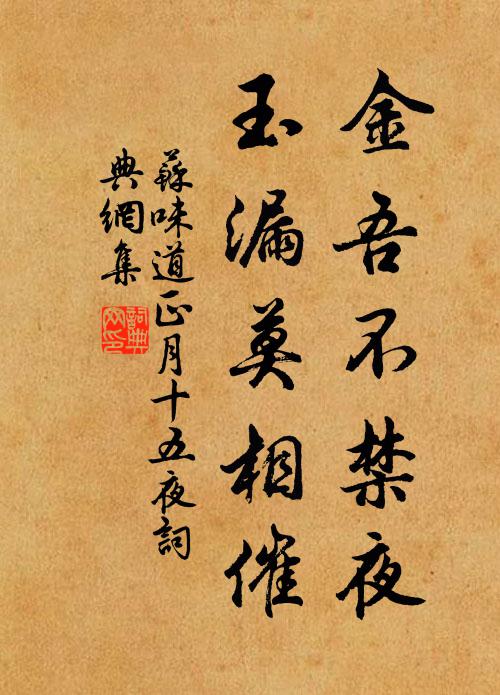 金吾不禁夜
玉漏莫相催
蘇味道正月十五夜詞
典網集
詞典
网印